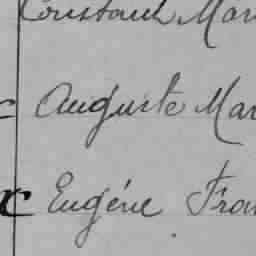 Constant Mar
c Auguste Mar
c Eugéne Fran